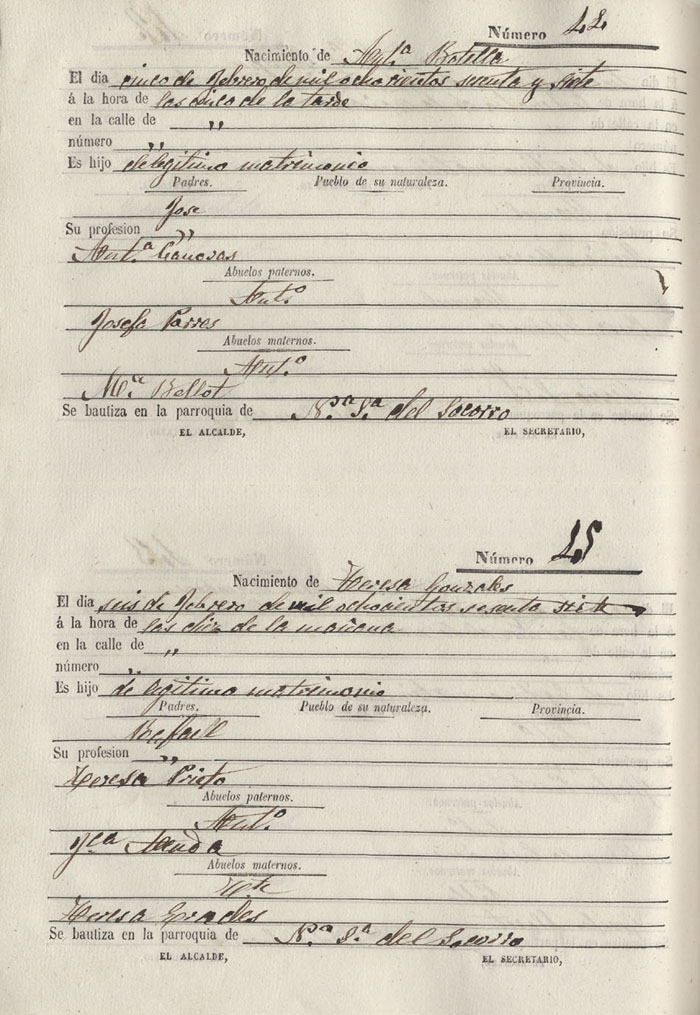 Número
Nacimiento de Ant.ª Botella
El dia cinco de febrero de mil ochocientos sesenta y siete
á la hora de las cinco de la tarde
en la calle de „
número „
Es hijo de legitimo matrimonio
Padres. Pueblo de su naturaleza. Provincia.
Jose
Su profesion „
Ant.ª Canovas
Abuelos paternos.
Ant.º
Josefa Parres
Abuelos maternos.
Ant.º
M.ª Bellot
Se bautiza en la parroquia de N.ra S.ª del Socorro
EL ALCALDE, EL SECRETARIO,
Número
Nacimiento de Teresa Gonzales
El dia seis de febrero de mil ochocientos sesenta siete
á la hora de las diez de la mañana
en la calle de „
número „
Es hijo de legitimo matrimonio
Padres. Pueblo de su naturaleza. Provincia.
Rafaell
Su profesion „
Teresa Prieto
Abuelos paternos.
Ant.º
Abuelos maternos.
Teresa
Se bautiza en la parroquia de N.ª S.ª del Socorro
EL ALCALDE, EL SECRETARIO,